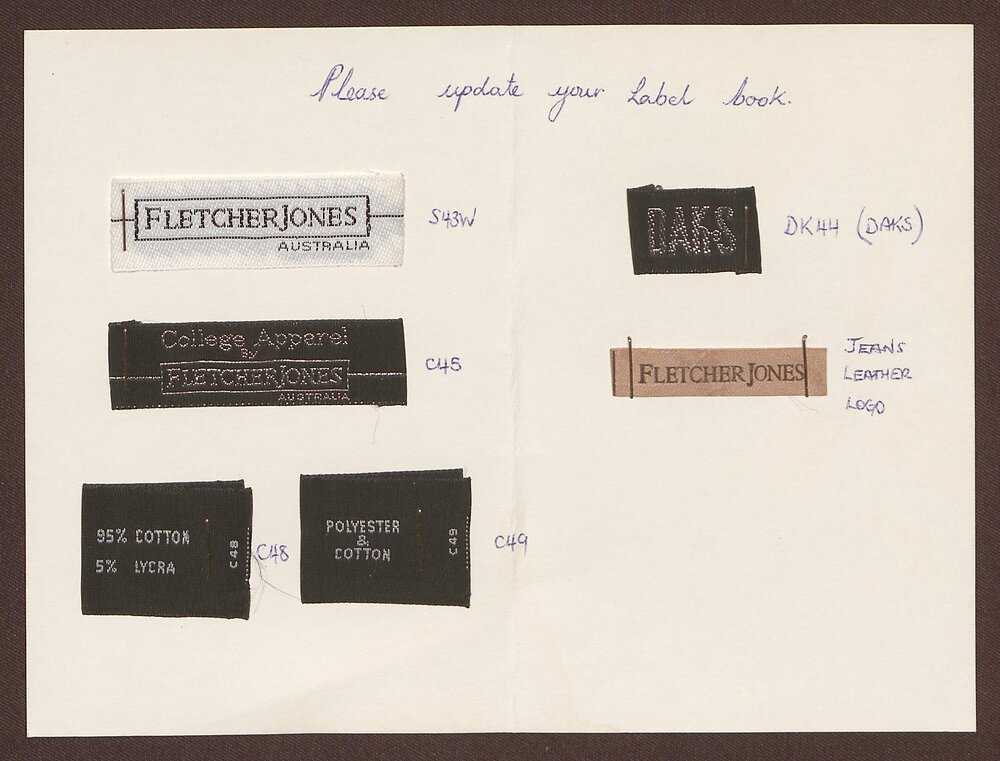 Please update your Label book.
FLETCHER JONES
AUSTRALIA
S43W
DAKS
DK44 (DAKS)
College Apparel
BY
FLETCHER JONES
AUSTRALIA
C45
FLETCHER JONES
JEANS
LEATHER
LOGO
95% COTTON
5% LYCRA
C48
C48
POLYESTER
&
COTTON
C49
C49